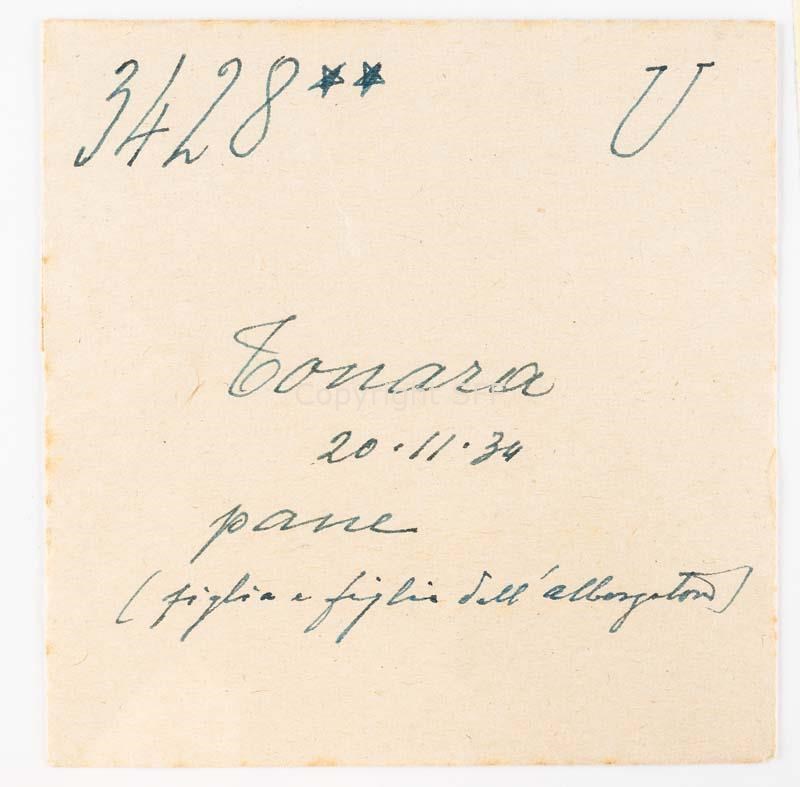 3428** U
Tonara
20.11.34
pane
(figlia e figlio dell'albergatore)
Copyright